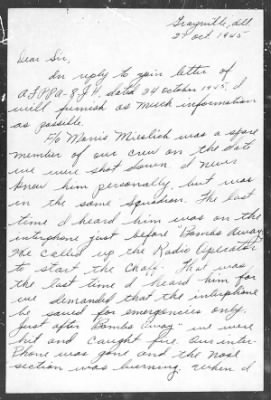 Grayville, Ill
27 Oct 1945
Dear Sir,
In reply to your letter of
24 October 1945, I
will furnish as much information
as possible.
F/O Morris was a spare
member of our crew on the date
we were shot down. I never
knew him personally, but was
in the same squadron. The last
time I heard him was on the
interphone just before "Bombs Away"
He called up the Radio Operator
to start the Chaff. That was
the last time I heard him for
we demanded that the interphone
be saved for emergencies only.
Just after "Bombs Away" we were
hit and caught fire. Our inter-
phone was gone and the nose
section was burning. When I